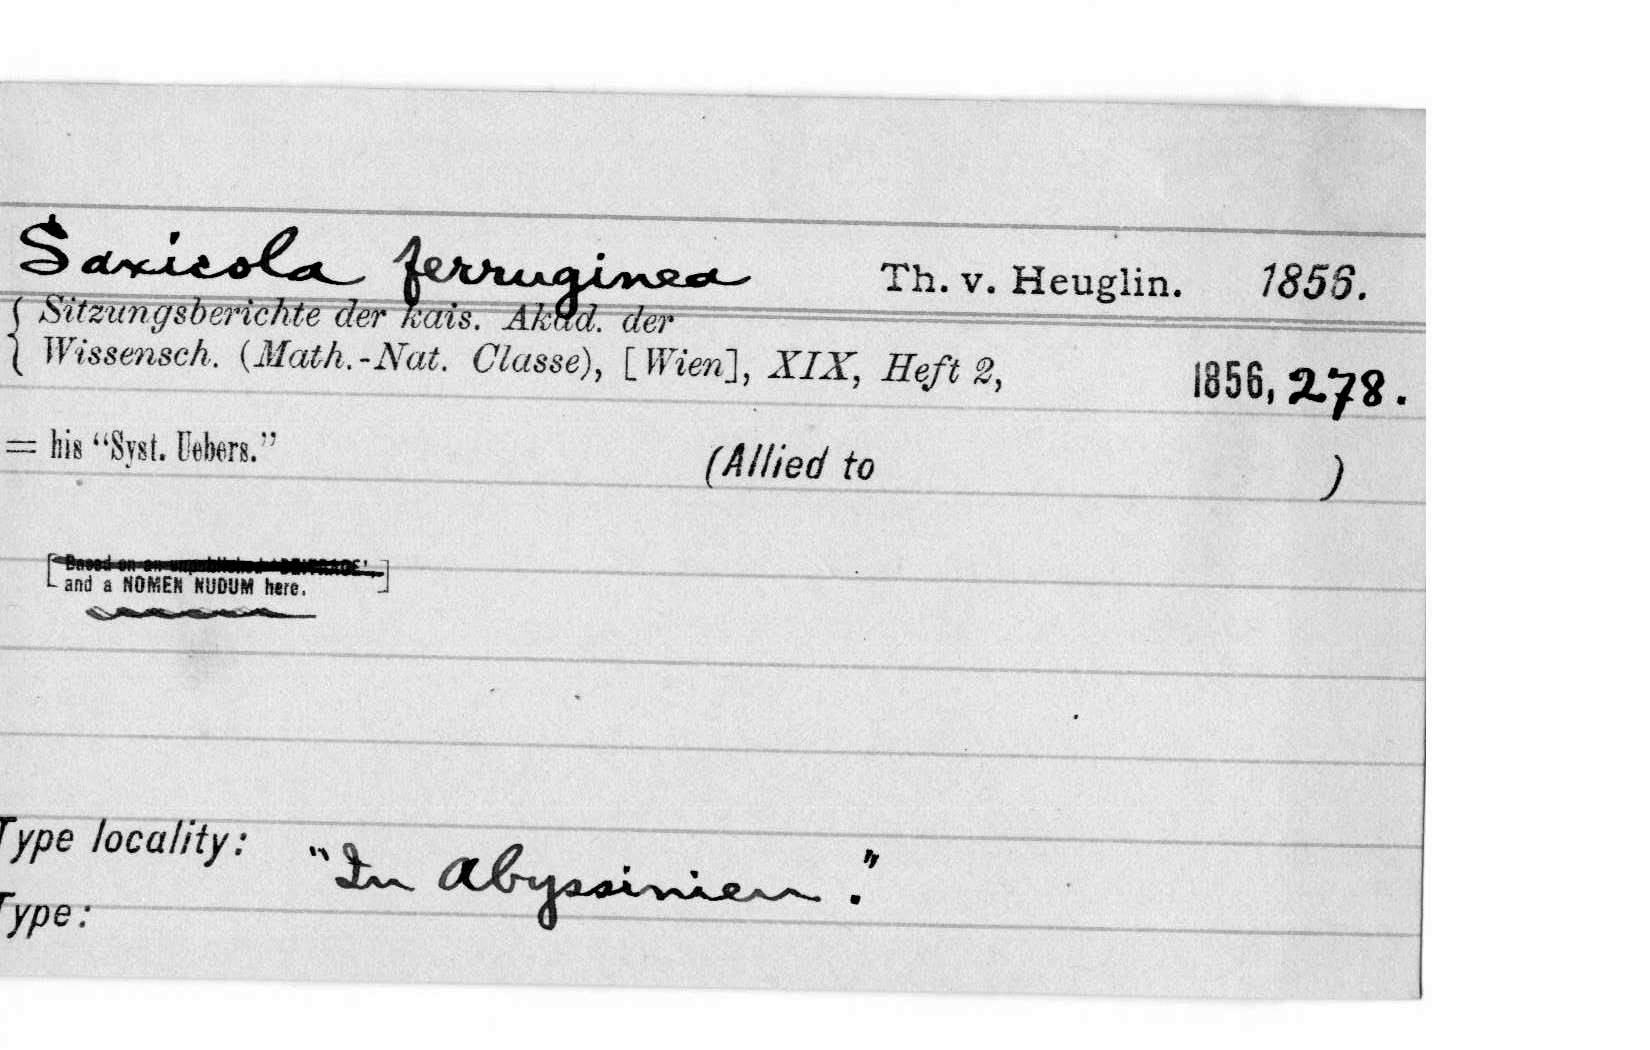 Saxicola ferruginea Th. v. Heuglin. 1856.
{ Sitzungsberichte der kais. Akad. der
Wissensch. (Math.-Nat. Classe), [Wien], XIX, Heft 2, 1856, 278.
= his “Syst. Uebers.” (Allied to )
[ Based on an unpublished 'BEITRAGE',
and a NOMEN NUDUM here. ]
Type locality: "In Abyssinien."
Type: